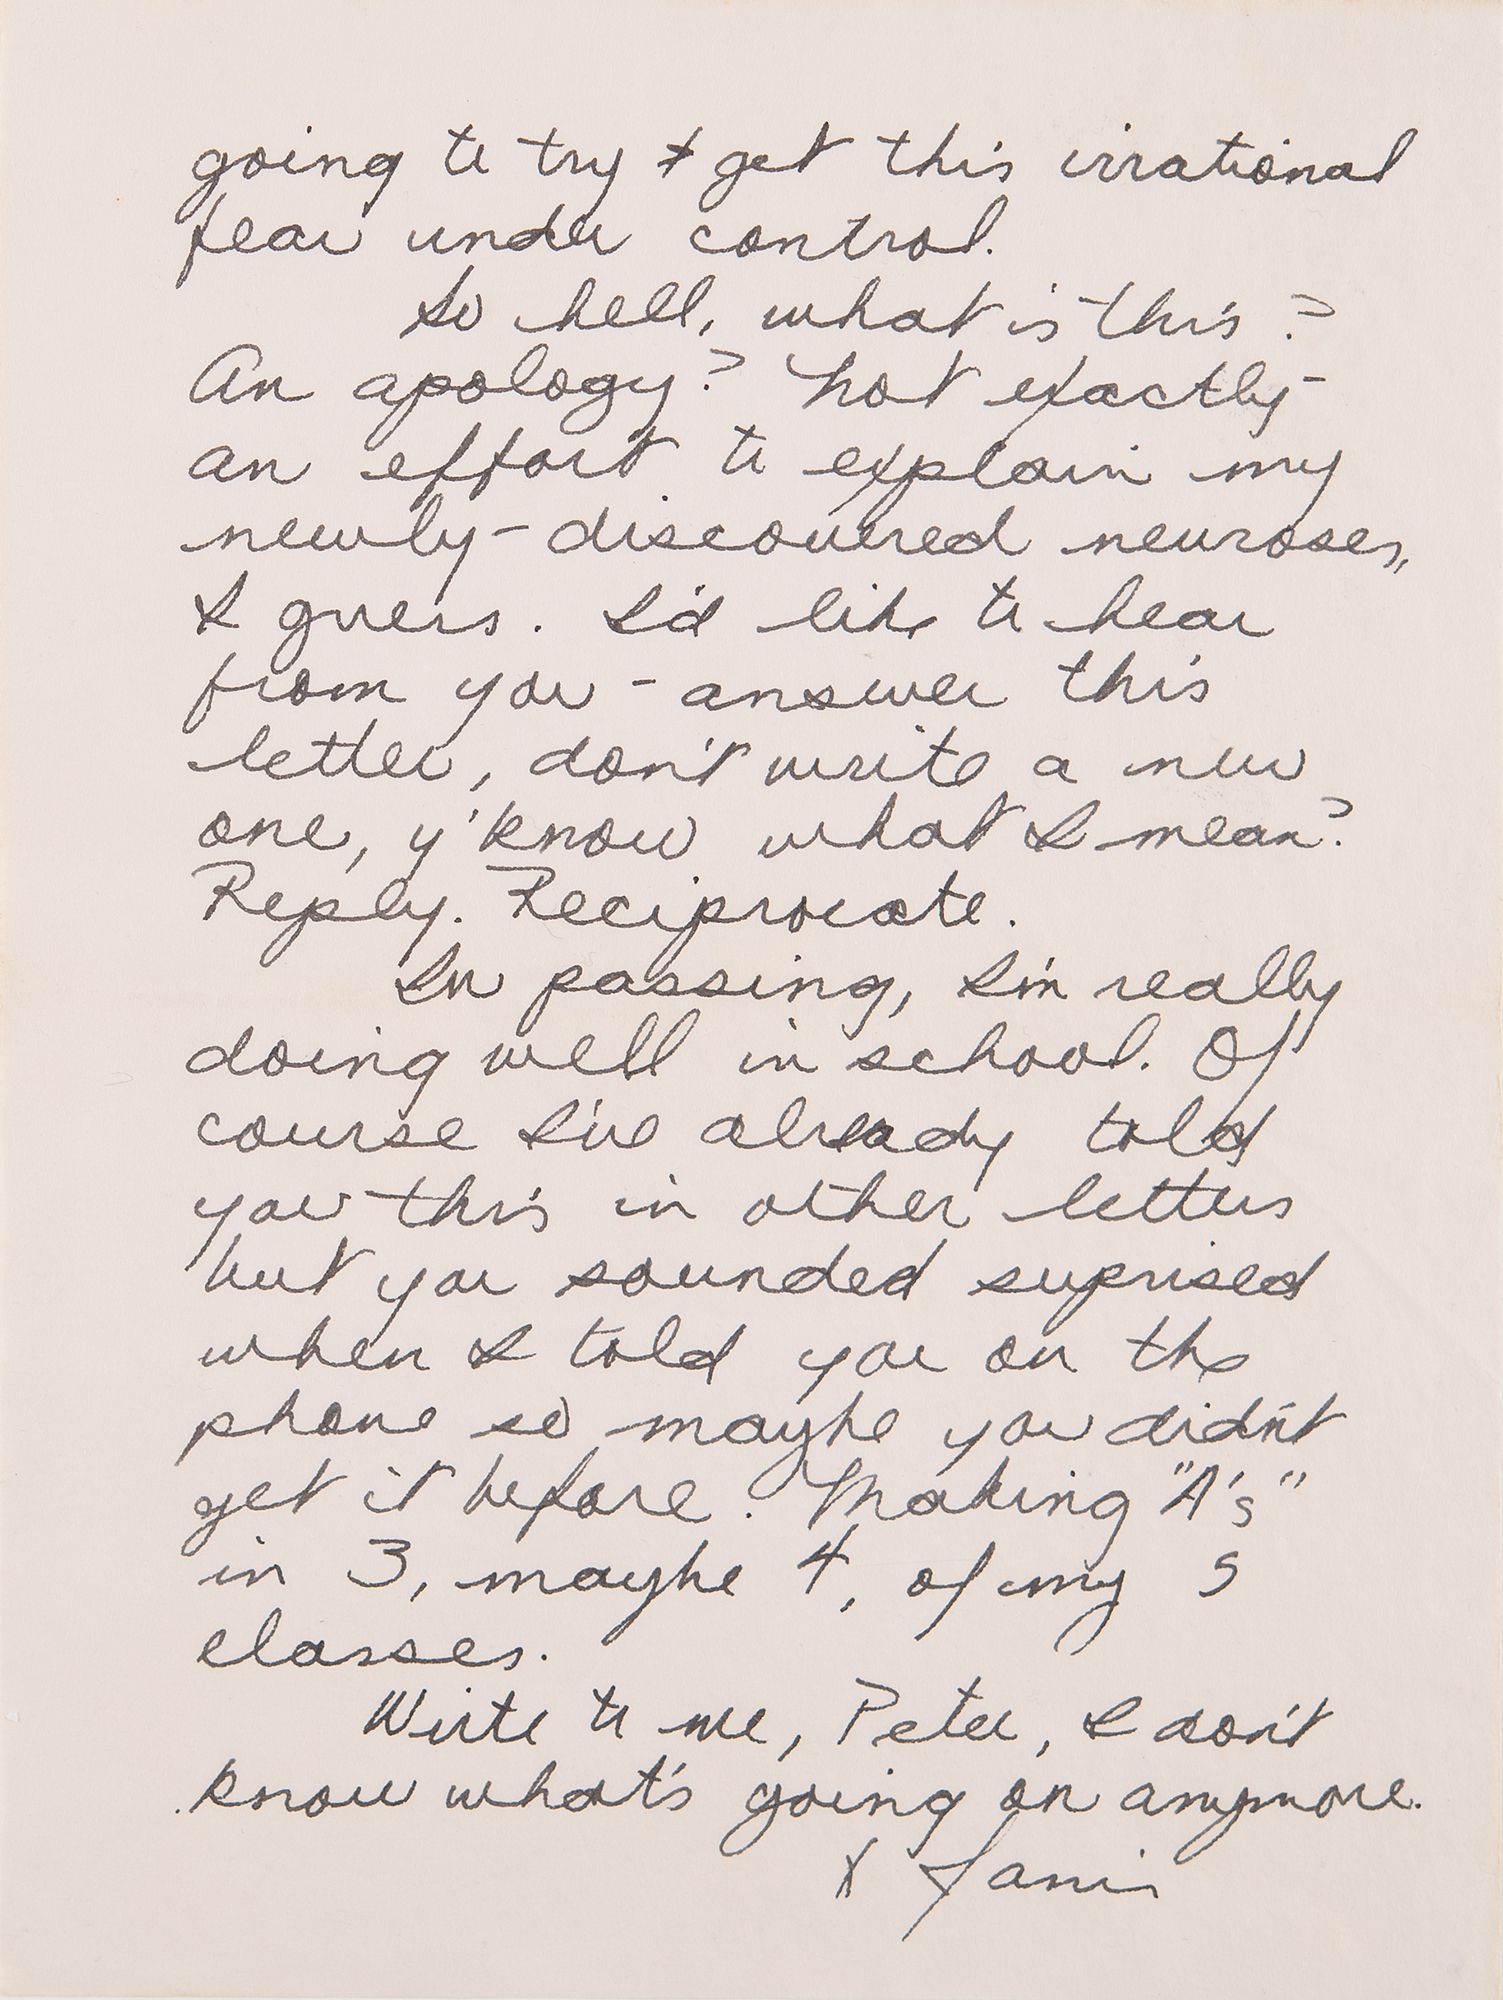 going to try + get this irrational
fear under control.
So hell, what is this?
An apology? Not exactly–
an effort to explain my
newly-discovered neuroses,
I guess. I'd like to hear
from you – answer this
letter, don't write a new
one, y'know what I mean?
Reply. Reciprocate.
In passing, I'm really
doing well in school. Of
course I've already told
you this in other letters
but you sounded suprised
when I told you on the
phone so maybe you didn't
get it before. Making "A's"
in 3, maybe 4, of my 5
classes.
Write to me, Peter, I don't
know what's going on anymore.
X Janis